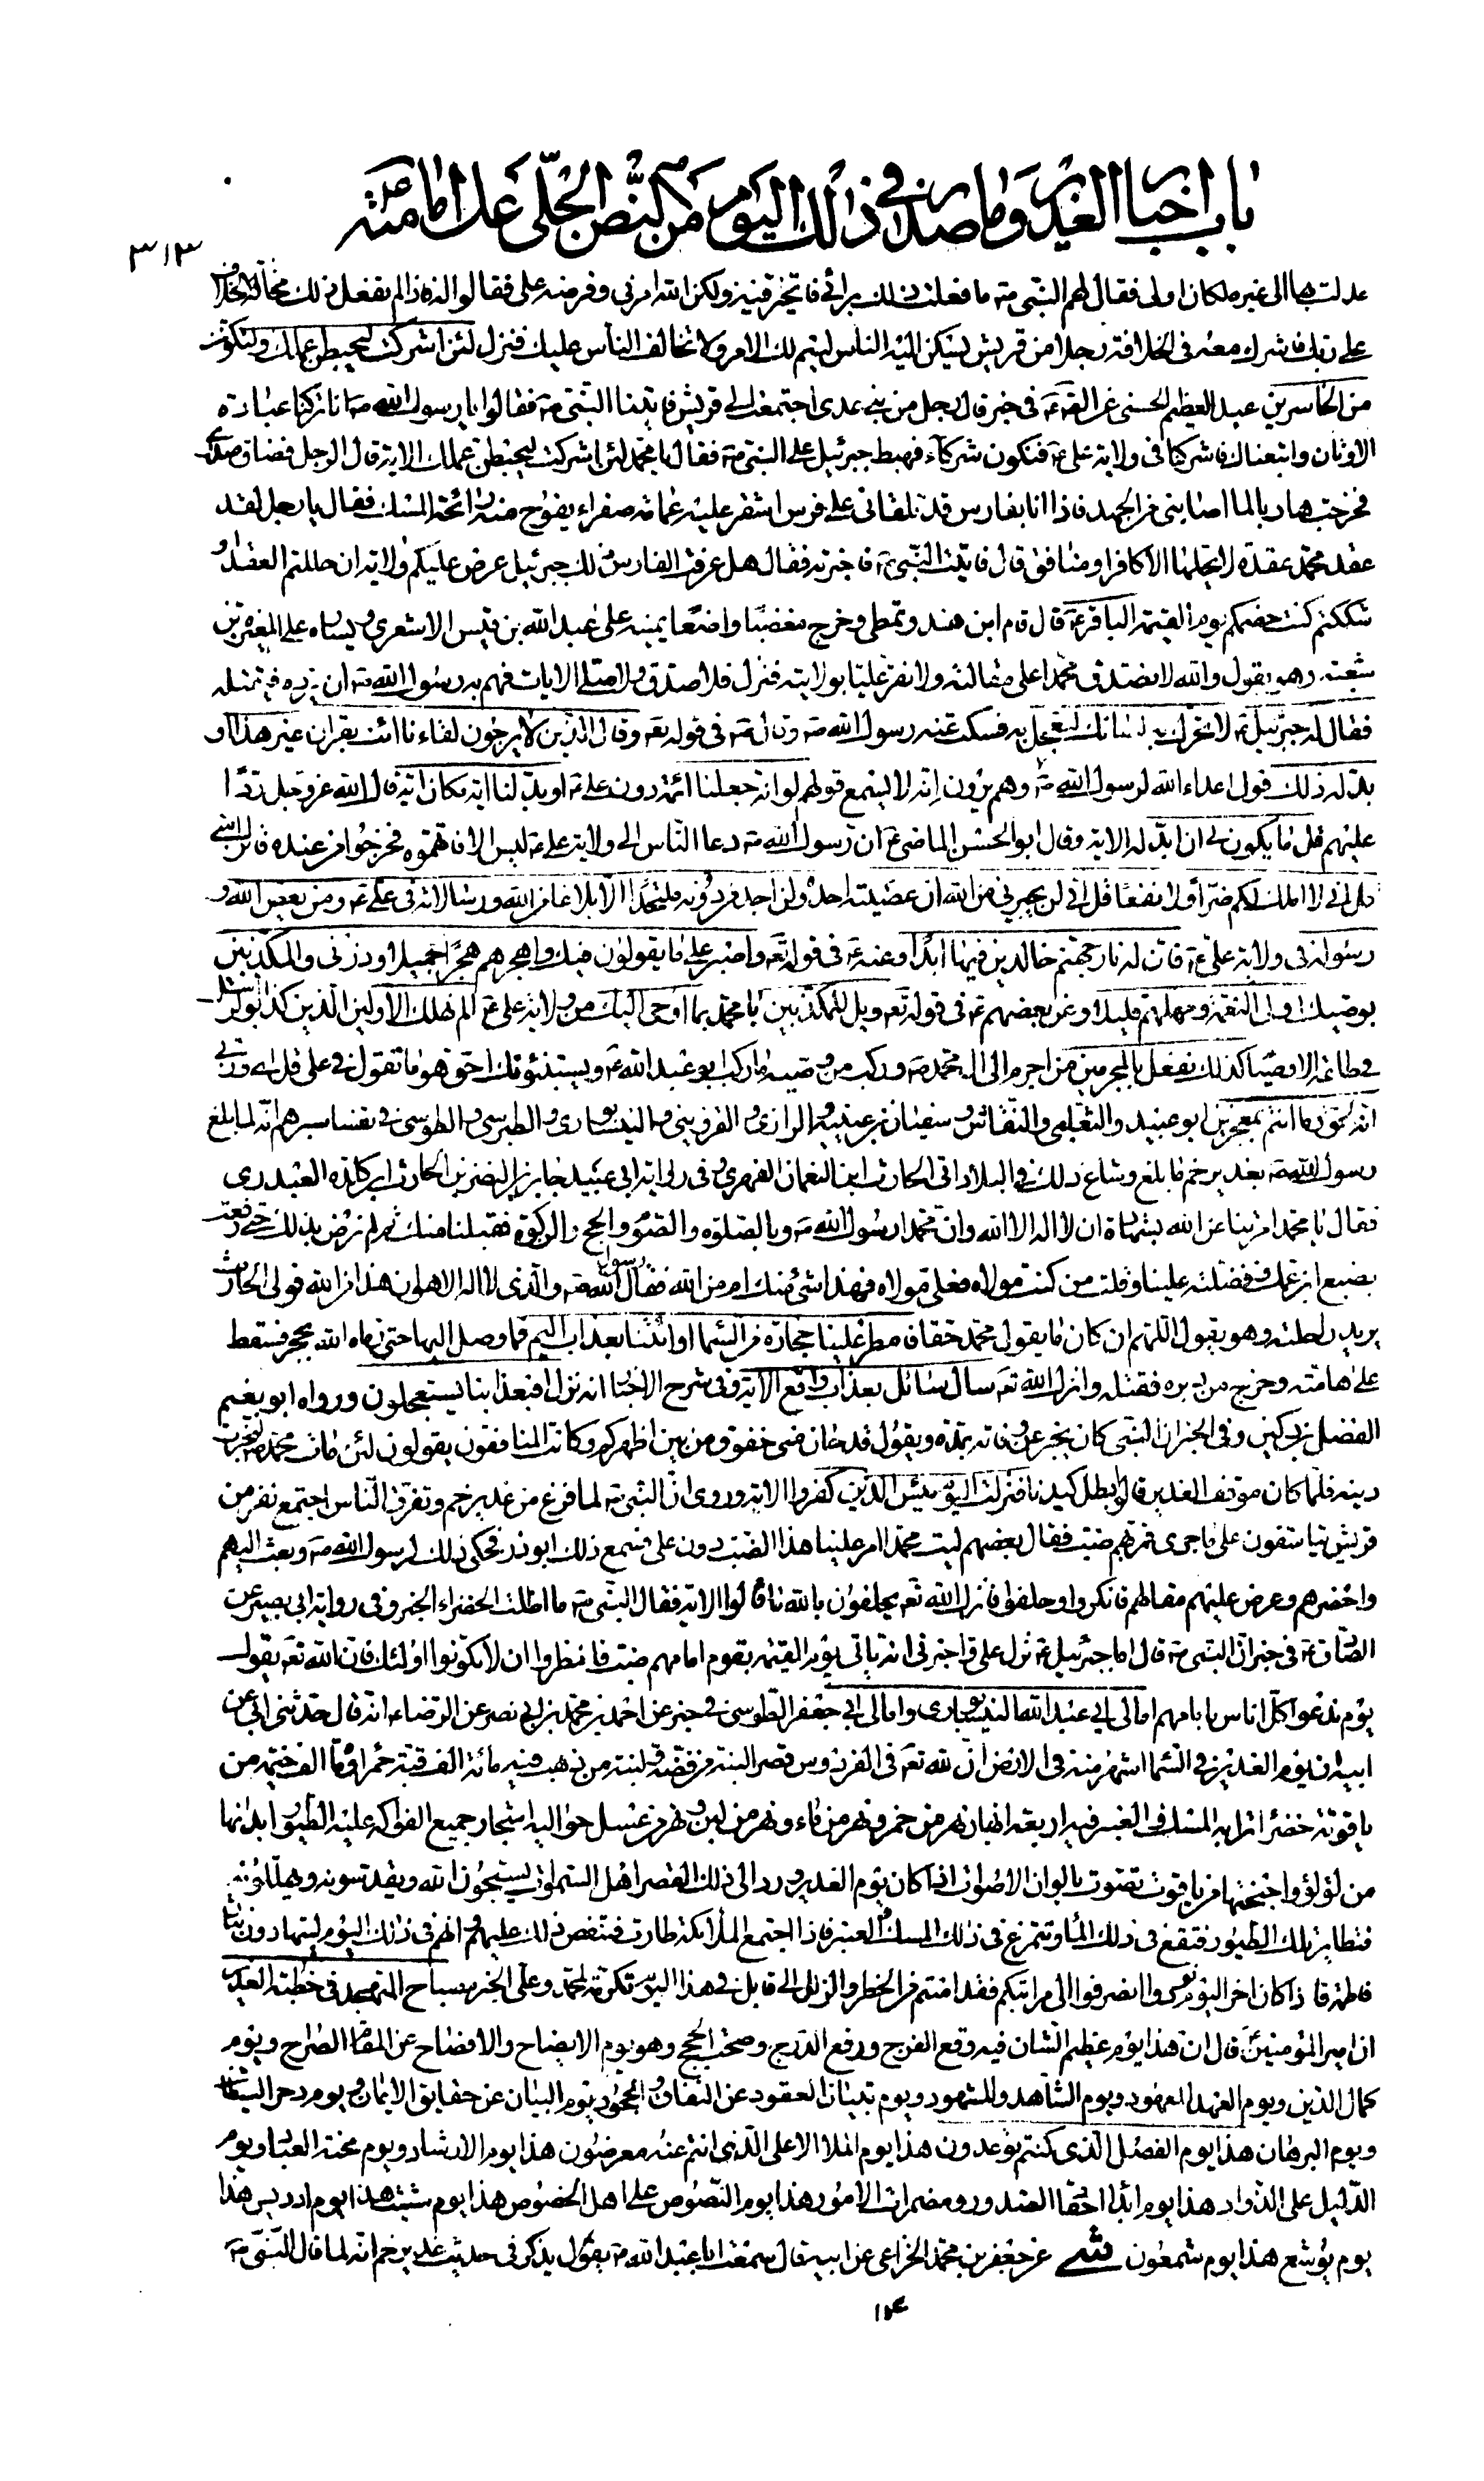 باب اخبار الغدير وما صدر في ذلك اليوم من النص الجلي على امامته
٣١٣
عدلت بها الى غيره لكان اولى فقال لهم النبي ص ما فعلت ذلك برائي فاتخير فيه ولكن الله امرني وفرضه علي فقالوا له فاذا لم تفعل ذلك مخافة الخلاف
على ربك فاشرك معه في الخلافة رجلا من قريش يسكن اليه الناس ليتم لك الامر ولا تخالف الناس عليك فنزل لئن اشركت ليحبطن عملك ولتكونن
من الخاسرين عبد العظيم الحسني عن الصادق ع في خبر قال رجل من بني عدي اجتمعت الي قريش فاتينا النبي ص فقالوا يا رسول الله انا تركنا عبادة
الاوثان واتبعناك فاشركنا في ولاية علي ع فنكون شركاء فهبط جبرئيل على النبي ص فقال يا محمد لئن اشركت ليحبطن عملك الاية قال الرجل فضاق صدري
فخرجت هاربا لما اصابني من الجهد فاذا انا بفارس قد تلقاني على فرس اشقر عليه عمامة صفراء يفوح منه رائحة المسك فقال يا رجل لقد
عقد محمد عقدة لا يحلها الا كافر او منافق قال فاتيت النبي ص فاخبرته فقال هل عرفت الفارس ذلك جبرئيل عرض عليكم ولاية ان حللتم العقد او
شككتم كنت خصمكم يوم القيمة الباقر ع قال قام ابن هند وتمطى وخرج مغضبا واضعا يمينه على عبد الله بن قيس الاشعري ويساره على المغيرة بن
شعبة وهو يقول والله لا نصدق محمدا على مقالته ولا نقر عليا بولايته فنزل فلا صدق ولا صلى الايات فهم به رسول الله ص ان يرده فيقتله
فقال له جبرئيل لا تحرك به لسانك لتعجل به فسكت عنه رسول الله ص وقال ع في قوله تع وقال الذين لا يرجون لقاءنا ائت بقران غير هذا او
بدله ذلك قول اعداء الله لرسول الله ص وهم يرون انه لا يسمع قولهم لو انه جعلنا ائمة دون علي ع او بدلنا اية مكان اية قال الله عز وجل ردا
عليهم قل ما يكون لي ان ابدله الاية وقال ابو الحسن الماضي ع ان رسول الله ص دعا الناس الى ولاية علي ع ليس الا فاتهموه فخرجوا من عنده فانزل الله
قل اني لا املك لكم ضرا ولا نفعا قل اني لن يجيرني من الله ان عصيته احد ولن اجد من دونه ملتحدا الا بلاغا من الله ورسالاته في علي ع ومن يعص الله و
رسوله في ولاية علي ع فان له نار جهنم خالدين فيها ابدا وعنه ع في قوله تع واصبر على ما يقولون فيك واهجرهم هجرا جميلا وذرني والمكذبين
بوصيك اولي النعمة ومهلهم قليلا وعن بعضهم ع في قوله تع ويل للمكذبين يا محمد بما اوحى اليك من ولاية علي ع الم نهلك الاولين الذين كذبوا الرسل
في طاعة الاوصياء كذلك نفعل بالمجرمين من اجرم الى ال محمد ص وركب من وصيه ما ركب ابو عبد الله ع ويستنبئونك احق هو ما تقول في علي قل اي وربي
انه لحق وما انتم بمعجزين ابو عبيد والثعلبي والنقاش وسفيان بن عيينة والرازي والقزويني والنيسابوري والطبرسي والطوسي في تفاسيرهم انه لما بلغ
رسول الله ص بغدير خم ما بلغ وشاع ذلك في البلاد اتى الحارث ابن النعمان الفهري وفي رواية ابي عبيد جابر بن النضر بن الحارث ابن كلدة العبدري
فقال يا محمد امرتنا عن الله بشهادة ان لا اله الا الله وان محمدا رسول الله ص وبالصلوة والصوم والحج والزكوة فقبلنا منك ثم لم ترض بذلك حتى رفعت
بضبع ابن عمك ففضلته علينا وقلت من كنت مولاه فعلي مولاه فهذا شئ منك ام من الله فقال رسول الله ص والذي لا اله الا هو ان هذا من الله فولى الحارث
يريد راحلته وهو يقول اللهم ان كان ما يقول محمد حقا فامطر علينا حجارة من السماء او ائتنا بعذاب اليم فما وصل اليها حتى رماه الله بحجر فسقط
على هامته وخرج من دبره فقتله وانزل الله تع سال سائل بعذاب واقع الاية وفي شرح الاخبار انه نزل افبعذابنا يستعجلون ورواه ابو نعيم
الفضل بن دكين وفي الخبر ان النبي كان يخبر عن وفاته بمدة ويقول قد حان مني خفوق من بين اظهركم وكانت المنافقون يقولون لئن مات محمد ص ليخرب
دينه فلما كان موقف الغدير قالوا بطل كيدنا فنزلت اليوم يئس الذين كفروا الاية وروي ان النبي ص لما فرغ من غدير خم وتفرق الناس اجتمع نفر من
قريش يتاسفون على ما جرى فمر بهم ضب فقال بعضهم ليت محمدا امر علينا هذا الضب دون علي فسمع ذلك ابو ذر فحكى ذلك لرسول الله ص وبعث اليهم
واحضرهم وعرض عليهم مقالهم فانكروا وحلفوا فانزل الله تع يحلفون بالله ما قالوا الاية فقال النبي ص ما اظلت الخضراء الخبر وفي رواية ابي بصير عن
الصادق ع في خبر ان النبي ص قال اما جبرئيل ع نزل علي واخبرني انه ياتي يوم القيمة بقوم امامهم ضب فانظروا ان لا تكونوا اولئك فان الله تع يقول
يوم ندعو كل اناس بامامهم امالي ابي عبد الله النيسابوري وامالي ابي جعفر الطوسي في خبر عن احمد بن محمد بن ابي نصر عن الرضا ع انه قال حدثني ابي عن
ابيه ان يوم الغدير في السماء اشهر منه في الارض ان لله تع في الفردوس قصر البنة من فضة ولبنة من ذهب فيه مائة الف قبة حمراء ومائة الف خيمة من
ياقوتة خضراء ترابه المسك والعنبر فيه اربعة انهار نهر من خمر ونهر من ماء ونهر من لبن ونهر من عسل حواليه اشجار جميع الفواكه عليه الطيور ابدانها
من لؤلؤ واجنحتها من ياقوت تصوت بالوان الاصوات اذا كان يوم الغدير ورد الى ذلك القصر اهل السموات يسبحون الله ويقدسونه ويهللونه
فتطاير تلك الطيور فتقع في ذلك الماء وتتمرغ في ذلك المسك والعنبر فاذا اجتمع الملائكة طارت فتنفض ذلك عليهم وانهم في ذلك اليوم ليتهادون نثار
فاطمة فاذا كان اخر اليوم نودوا انصرفوا الى مراتبكم فقد امنتم من الخطر والزلل الى قابل في هذا اليوم تكرمة لمحمد وعلي الخبر مصباح المتهجد في خطبة الغدير
ان امير المؤمنين ع قال ان هذا يوم عظيم الشان فيه وقع الفرج ورفع الدرج وصحت الحجج وهو يوم الايضاح والافصاح عن المقام الصراح ويوم
كمال الدين ويوم العهد المعهود ويوم الشاهد والمشهود ويوم تبيان العقود عن النفاق والجحود ويوم البيان عن حقايق الايمان ويوم دحر الشيطان
ويوم البرهان هذا يوم الفصل الذي كنتم توعدون هذا يوم الملا الاعلى الذي انتم عنه معرضون هذا يوم الارشاد ويوم محنة العباد ويوم
الدليل على الذواد هذا يوم ابدا احقاد الصدور ومضمرات الامور هذا يوم النصوص على اهل الخصوص هذا يوم شيث هذا يوم ادريس هذا
يوم يوشع هذا يوم شمعون شى عن جعفر بن محمد الخزاعي عن ابيه قال سمعت ابا عبد الله ع يقول يذكر في حديث غدير خم انه لما قال النبي ص
١٠٤